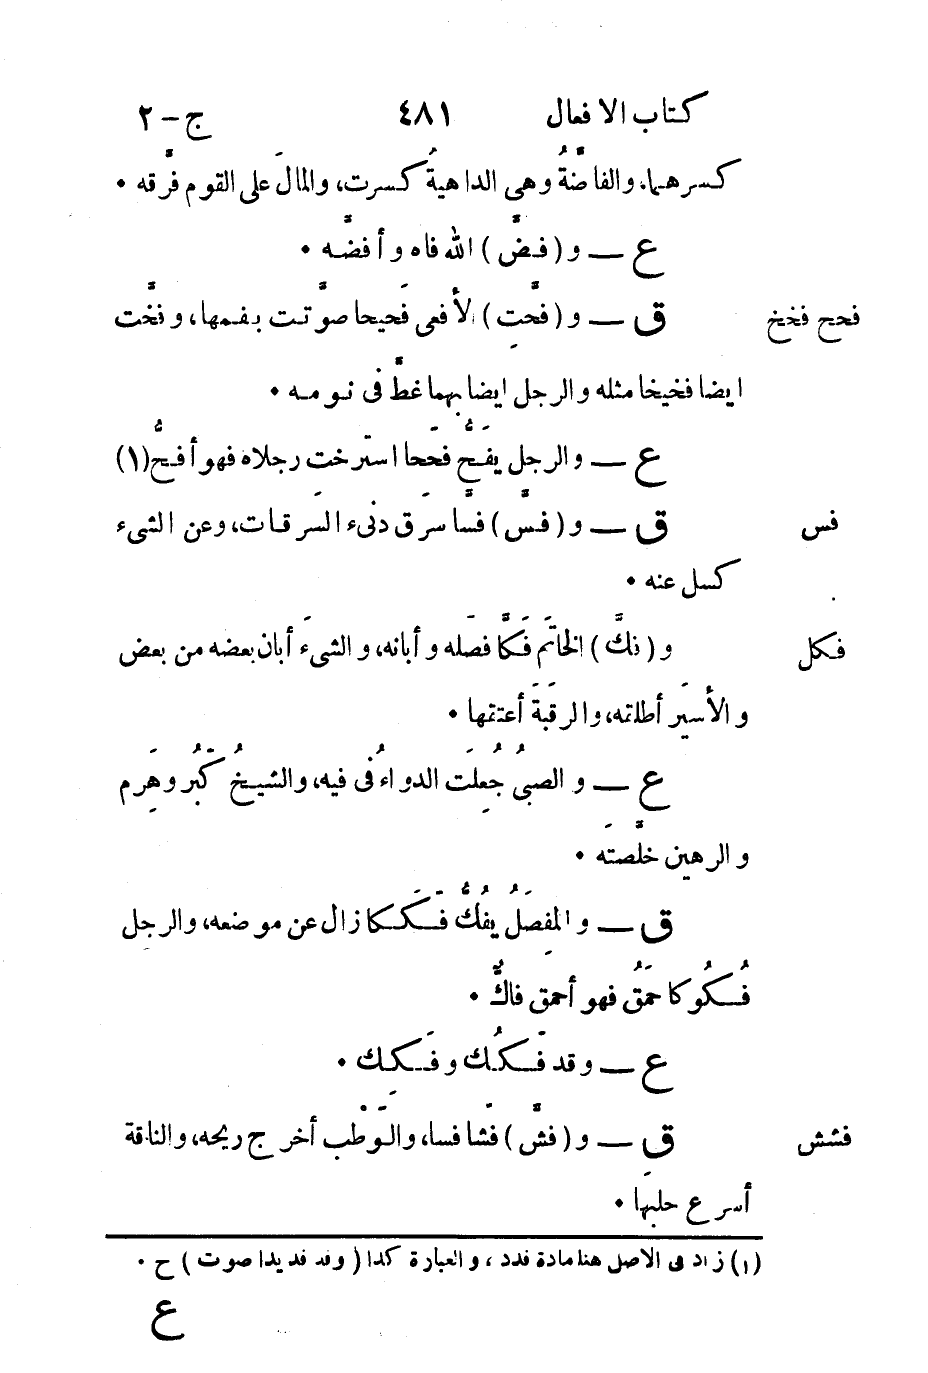 كتاب الافعال ٤٨١ ج - ٢
كسرهما، والفاضّةُ وهى الداهيةُ كسرت، والمالَ على القوم فرَّقه •
ع — و (فضَّ) الله فاه وأفضَّه •
فحح فخخ ق — و (فحَّتِ) الأفعى فَحيحا صوَّتت بفمها، وفخَّت
ايضا فخيخا مثله والرجل ايضا بهما غطَّ فى نومه •
ع — والرجل يفَحُّ فحَحا استرخت رجلاه فهو أفحُّ (١)
فس ق — و (فسَّ) فسًّا سرَق دنىء السَرقات، وعن الشىء
كسل عنه •
فكك و (فكَّ) الخاتَم فَكًّا فصَله وأبانه، والشىءَ أبان بعضه من بعض
والأسيَر أطلقه، والرقبَةَ أعتقها •
ع — والصبىُ جُعلَت الدواءُ فى فيه، والشيخُ كَبُر وهَرِم
والرهين خلَّصتَه •
ق — والمَفِصَلُ يفُكُّ فَكَكا زال عن موضعه، والرجل
فُكُوكا حمَُق فهو أحمق فاكٌّ •
ع — وقد فَكُكَ وفَكِكَ •
فشش ق — و (فشَّ) فَشا فسا، والوَطْب أخرج ريحه، والناقة
أسرع حلبَها •
(١) زاد فى الاصل هنا مادة فدد ، والعبارة كذا (وفد فديدا صوت) ح •
ع